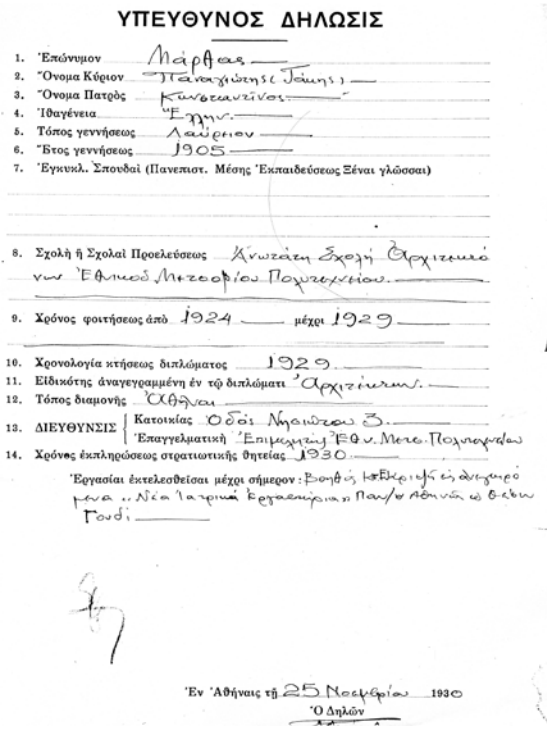 ΥΠΕΥΘΥΝΟΣ ΔΗΛΩΣΙΣ
1. Ἐπώνυμον Μάρθας
2. Ὄνομα Κύριον Παναγιώτης (Τάκης)
3. Ὄνομα Πατρὸς Κωνσταντίνος
4. Ἰθαγένεια Ἕλλην.
5. Τόπος γεννήσεως Λαύριον
6. Ἔτος γεννήσεως 1905
7. Ἐγκυκλ. Σπουδαὶ (Πανεπιστ. Μέσης Ἐκπαιδεύσεως Ξέναι γλῶσσαι)
8. Σχολὴ ἢ Σχολαὶ Προελεύσεως Ἀνωτάτη Σχολή Ἀρχιτεκτό
νων Ἐθνικοῦ Μετσοβίου Πολυτεχνείου.
9. Χρόνος φοιτήσεως ἀπὸ 1924 μέχρι 1929
10. Χρονολογία κτήσεως διπλώματος 1929
11. Εἰδικότης ἀναγεγραμμένη ἐν τῷ διπλώματι Ἀρχιτέκτων.
12. Τόπος διαμονῆς Ἀθῆναι
13. ΔΙΕΥΘΥΝΣΙΣ { Κατοικίας Ὁδός Νησιώτου 3.
Ἐπαγγελματικὴ Ἐπιμελητής Ἐθν. Μετσ. Πολυτεχνείου
14. Χρόνος ἐκπληρώσεως στρατιωτικῆς θητείας 1930
Ἐργασίαι ἐκτελεσθεῖσαι μέχρι σήμερον: Βοηθός εἰς ἀνεγειρό
μενα „Νέα Ἰατρικά Ἐργαστήρια" Παν/ου Ἀθηνῶν εἰς θέσιν
Γουδί
Ἐν Ἀθήναις τῇ 25 Νοεμβρίου 1930
Ὁ Δηλῶν